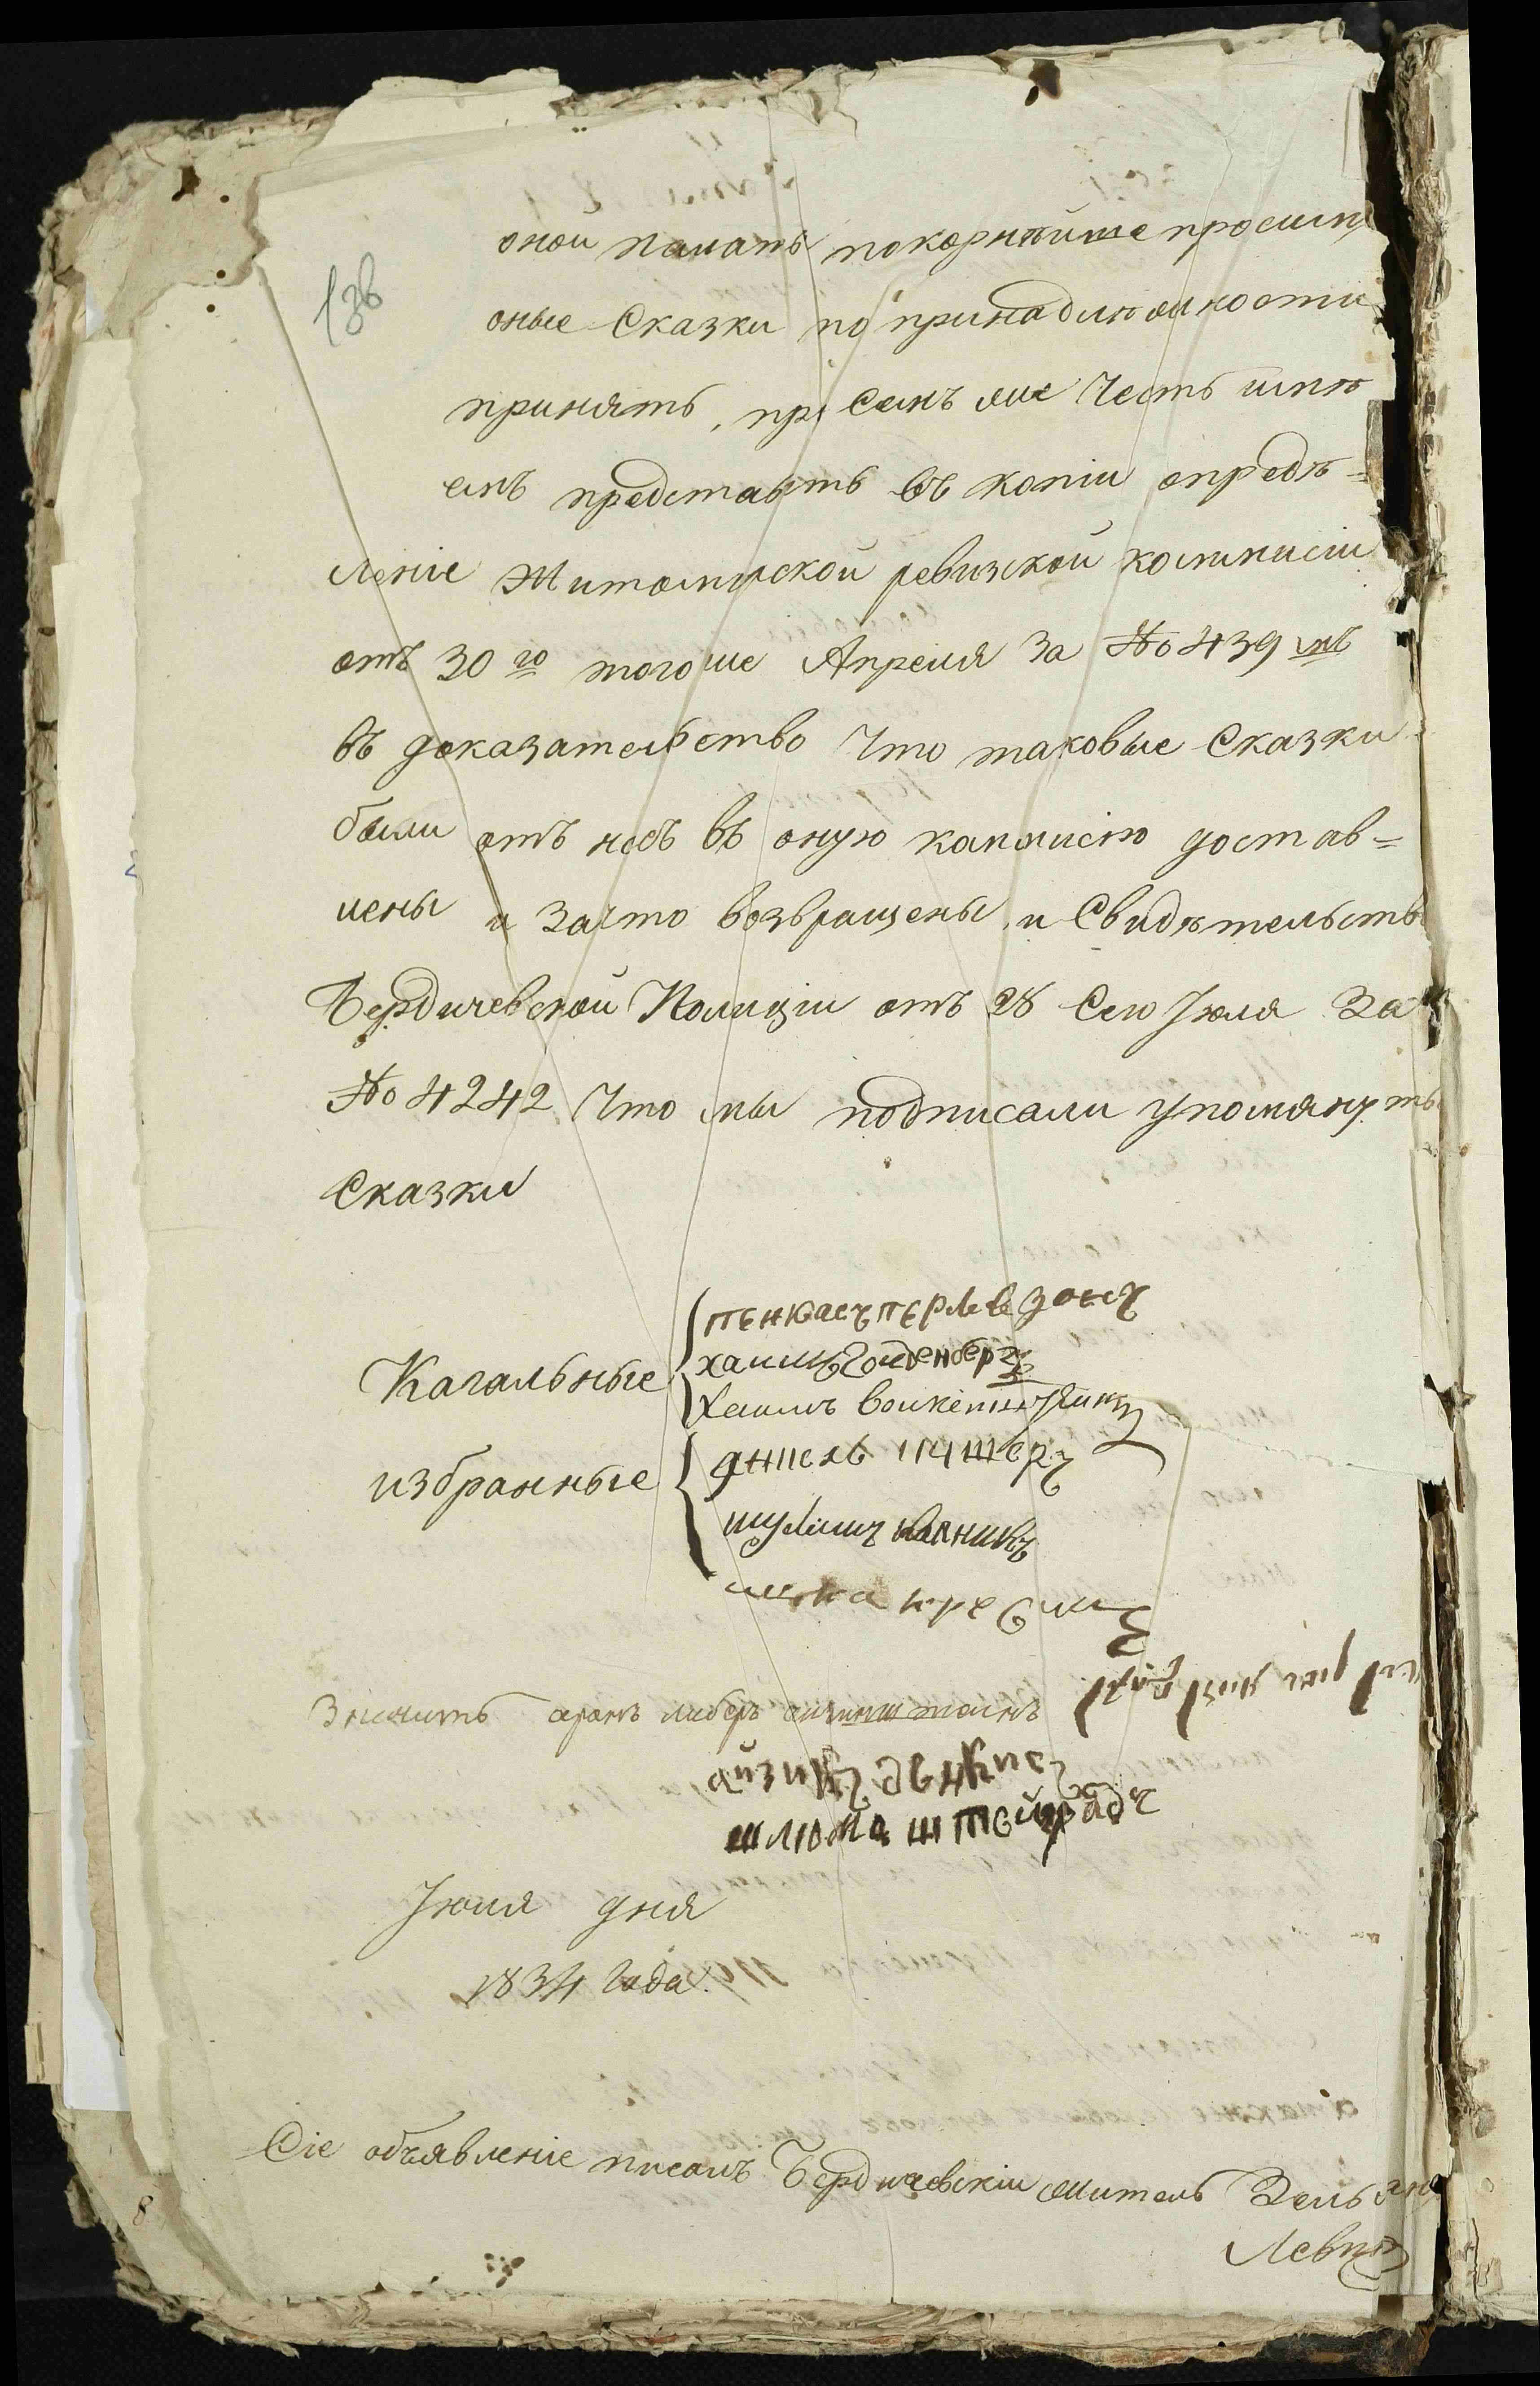 136
оной палатѣ покорнѣйше просимъ
оные Сказки по принадлѣжности
принять, при Семъ же Честь имѣ
емъ представить въ копіи опредѣ=
леніе Житомирской ревизской коммисіи
отъ 30го того же Апреля За №439 мъ
въ доказательство Что таковые Сказки
были отъ насъ въ оную коммисію достав=
лены и За что возвращены, и Свидѣтельство
Бердичевской Полиціи отъ 28 Сего Іюля За
№4242 Что мы подписали упомянуты
Сказки
Кагальные
пенкасъ перлевзонъ
хаимъ Голденбергъ
Хаимъ
избранные
янкель
шулимъ
значитъ аронъ либеръ
шлюма штейнградъ
Іюля дня
1834 Года.
Сіе объявленіе писалъ Бердичевскіи житель
Левитъ
8